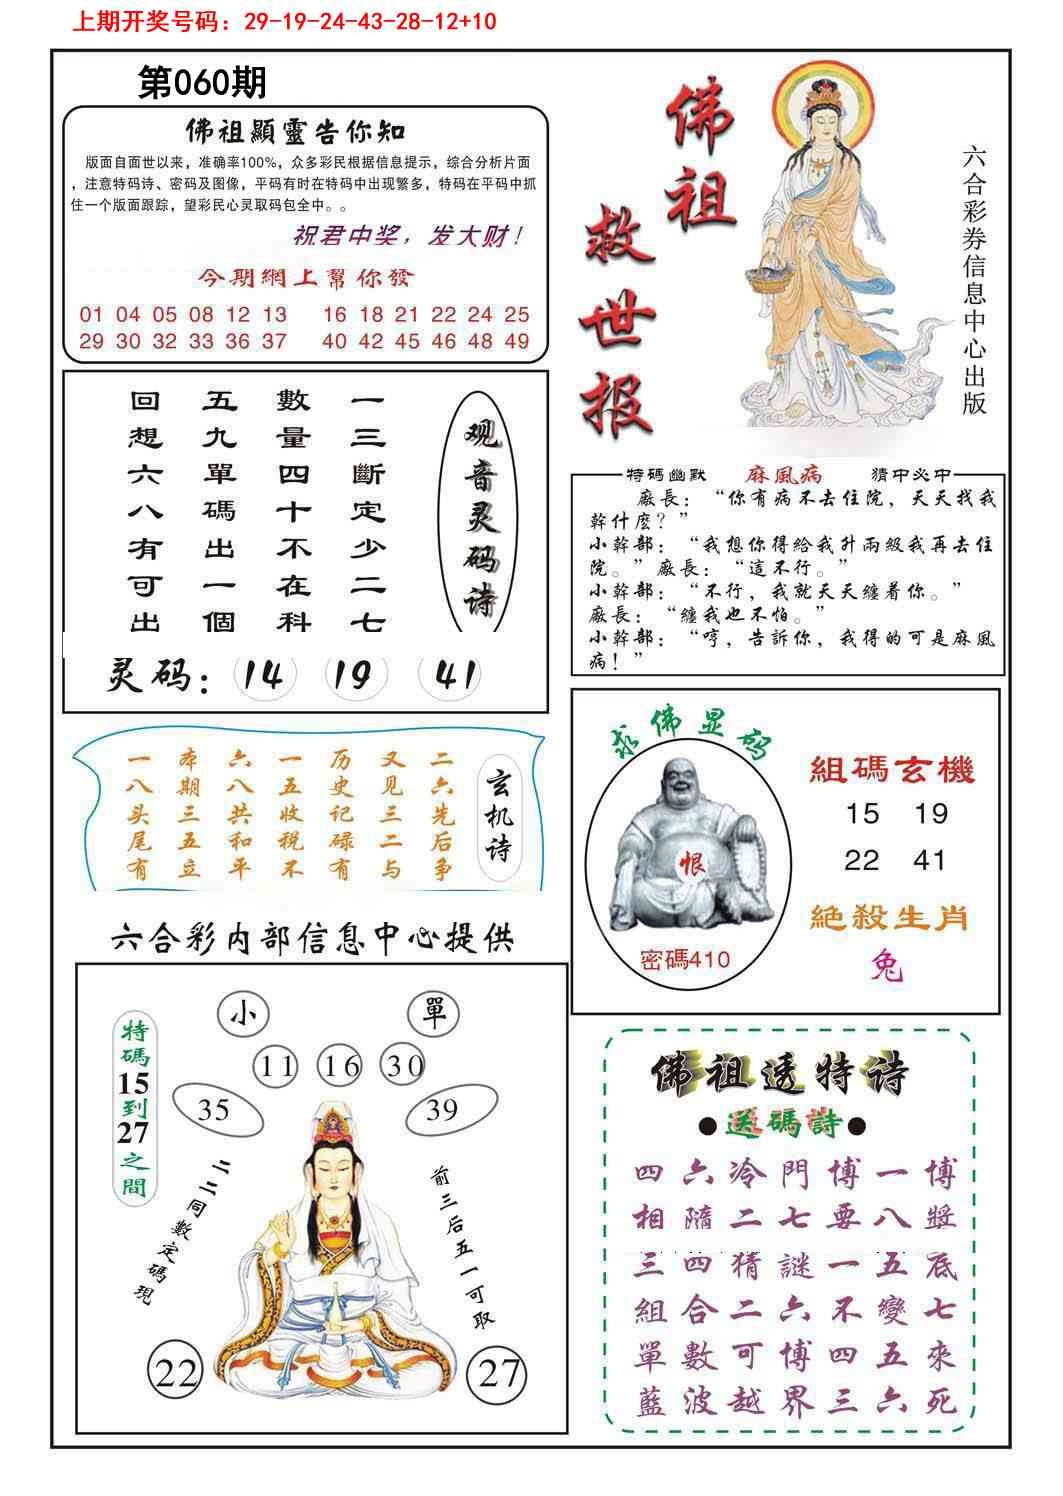 上期开奖号码：29-19-24-43-28-12+10
第060期
佛祖顯靈告你知
版面自面世以来，准确率100%，众多彩民根据信息提示，综合分析片面
，注意特码诗、密码及图像，平码有时在特码中出现繁多，特码在平码中抓
住一个版面跟踪，望彩民心灵取码包全中。。
祝君中奖，发大财！
今期網上幫你發
01 04 05 08 12 13 16 18 21 22 24 25
29 30 32 33 36 37 40 42 45 46 48 49
佛祖
救世报
六合彩券信息中心出版
回五數一
想九量三
六單四斷
八碼十定
有出不少
可一在二
出個科七
观音灵码诗
灵码：14 19 41
特碼幽默 麻風病 猜中必中
廠長：“你有病不去住院，天天找我
幹什麼？”
小幹部：“我想你得給我升兩級我再去住
院。”廠長：“這不行。”
小幹部：“不行，我就天天纏着你。”
廠長：“纏我也不怕。”
小幹部：“哼，告訴你，我得的可是麻風
病！”
一本六一历又二
八期八五史见六
头三共收记三先
尾五和税碌二后
有立平不有与争
玄机诗
求佛显码
恨
密碼410
組碼玄機
15 19
22 41
絕殺生肖
兔
六合彩内部信息中心提供
特碼15到27之間
小 單
11 16 30
35 39
二二同數定碼現
前三后五一可取
22 27
佛祖透特诗
●送碼詩●
四六冷門博一博
相隨二七要八將
三四猜謎一五底
組合二六不變七
單數可博四五來
藍波越界三六死